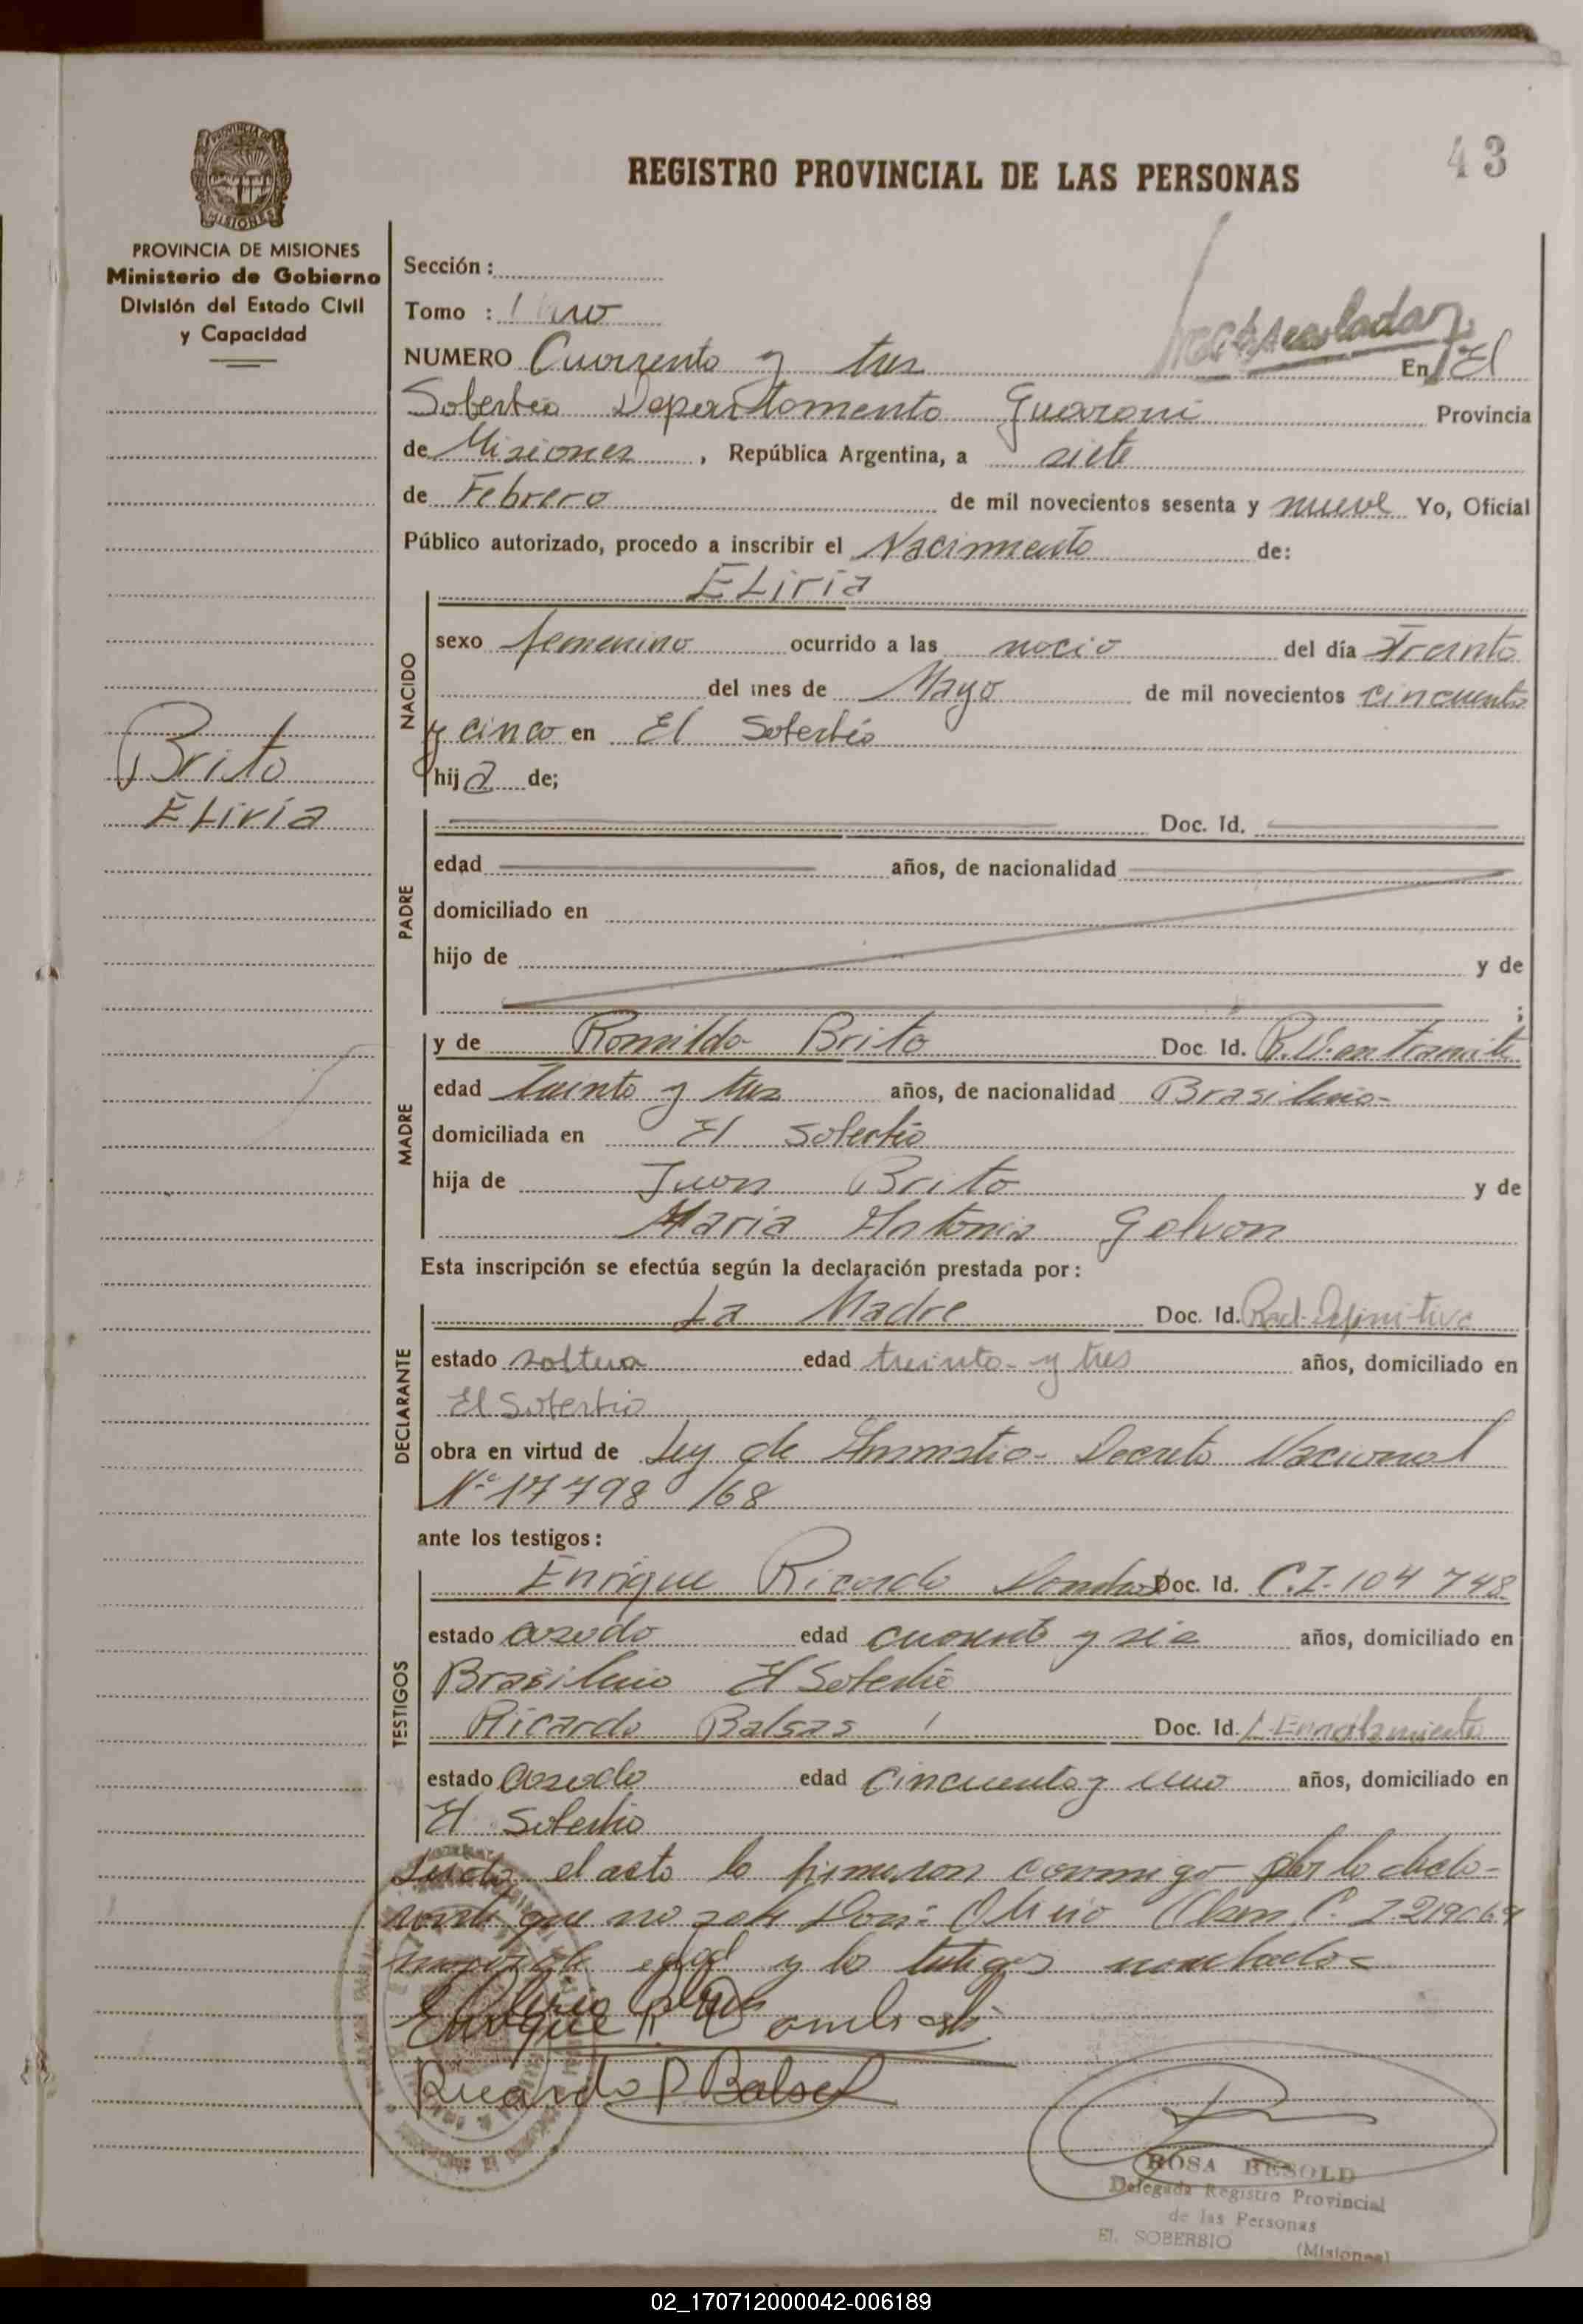 43
REGISTRO PROVINCIAL DE LAS PERSONAS
PROVINCIA DE MISIONES
Ministerio de Gobierno
División del Estado Civil
y Capacidad
Sección :
Tomo : 1 uno
NUMERO Cuarenta y tres En El
Soberbio Departamento Guarani Provincia
de Misiones , República Argentina, a siete
de Febrero de mil novecientos sesenta y nueve Yo, Oficial
Público autorizado, procedo a inscribir el Nacimiento de:
NACIDO
ELiria
sexo femenino ocurrido a las del día Treinta
del mes de Mayo de mil novecientos cincuenta
y cinco en El Soberbio
hija de;
Brito
ELiria
PADRE
Doc. Id.
edad años, de nacionalidad
domiciliado en
hijo de y de
;
MADRE
y de Romilda Brito Doc. Id. en Tramite
edad Treinta y tres años, de nacionalidad Brasileña-
domiciliada en El Soberbio
hija de Juan Brito y de
Maria Antonia Galvan
Esta inscripción se efectúa según la declaración prestada por :
DECLARANTE
La Madre Doc. Id. Rad. Definitiva
estado soltera edad treinta y tres años, domiciliado en
El Soberbio
obra en virtud de Ley de Amnistia- Decreto Nacional
Nº 17798/68
ante los testigos :
TESTIGOS
Enrique Ricardo Doc. Id. C.I-104 748
estado casado edad cuarenta y años, domiciliado en
Brasileño El Soberbio
Ricardo Balsas Doc. Id. L. Enrolamiento
estado casado edad cincuenta y uno años, domiciliado en
El Soberbio
el acta la firmaron conmigo por la decla-
rante que no sabe Don: Olirio C.
edad y los testigos nombrados
Enrique R.
Ricardo P. Balsas
ROSA BESOLD
Delegada Registro Provincial
de las Personas
EL SOBERBIO (Misiones)
02_170712000042-006189